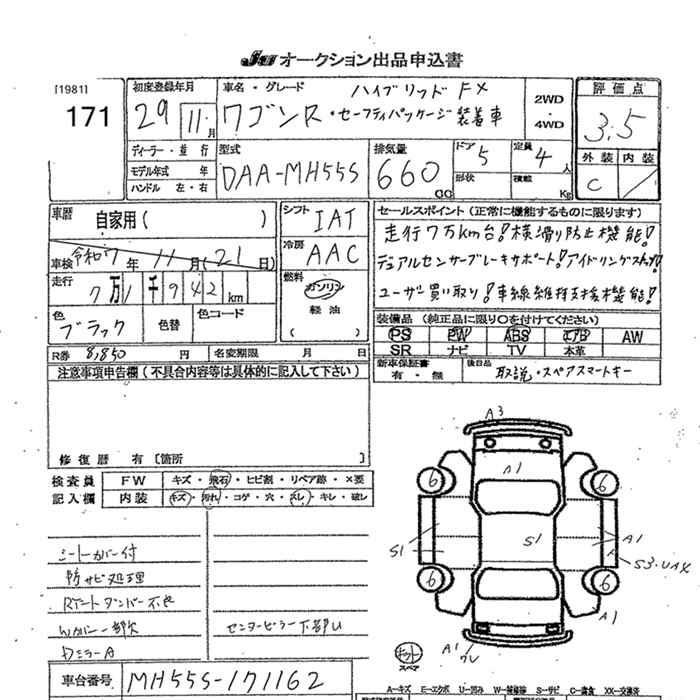 JU オークション出品申込書
[1981]
171
初度登録年月
29 11月
車名・グレード
ハイブリッド FX
ワゴンR・セーフティパッケージ装着車
2WD
・
4WD
評価点
3.5
外装 内装
C
ディーラー・並行
モデル年式 年
ハンドル 左・右
型式
DAA-MH55S
排気量
660 CC
ドア 5
形状
定員 4 人
積載 Kg
車歴 自家用( )
車検 令和7年11月(21日)
走行 7万1千942km
色 ブラック
色替
色コード
シフト IAT
冷房 AAC
燃料 ガソリン
軽油
( )
セールスポイント(正常に機能するものに限ります)
走行7万km台!横滑り防止機能!
デュアルセンサーブレーキサポート!アイドリングストップ!
ユーザー買い取り!車線維持支援機能!
装備品(純正品に限り○を付けてください)
PS PW ABS エアB AW
SR ナビ TV 本革
R券 8,850 円
名変期限 月 日
新車保証書
有・無
後日品 取説・スペアスマートキー
注意事項申告欄(不具合内容等は具体的に記入して下さい)
修復歴 有〔箇所 〕
検査員
記入欄
FW キズ・飛石・ヒビ割・リペア跡・×要
内装 キズ・汚れ・コゲ・穴・スレ・キレ・破レ
シートカバー付
防サビ処理
Rゲートダンパー不良
Wカバー一部欠
Dミラー A
センターピラー下部U
A3
A1
6
6
S1
S1
A1
S3・UAX
6
6
A1
A1
キット
スペア
車台番号 MH55S-171162
A-キズ E-エクボ U-凹み W-補修跡 S-サビ C-腐食 XX-交換済